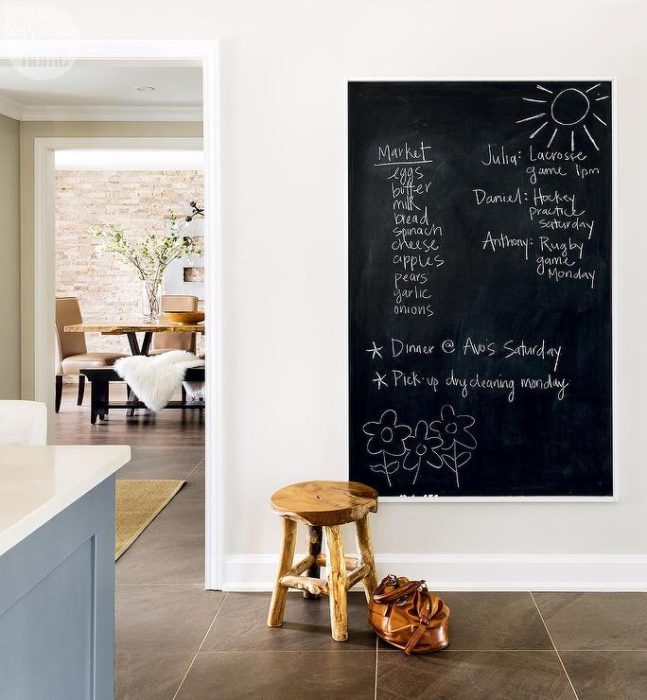 style at
home
Market
eggs
butter
milk
bread
spinach
cheese
apples
pears
garlic
onions
Julia: Lacrosse
game 1pm
Daniel: Hockey
practice
Saturday
Anthony: Rugby
game
Monday
* Dinner @ Avos Saturday
* Pick-up dry cleaning monday